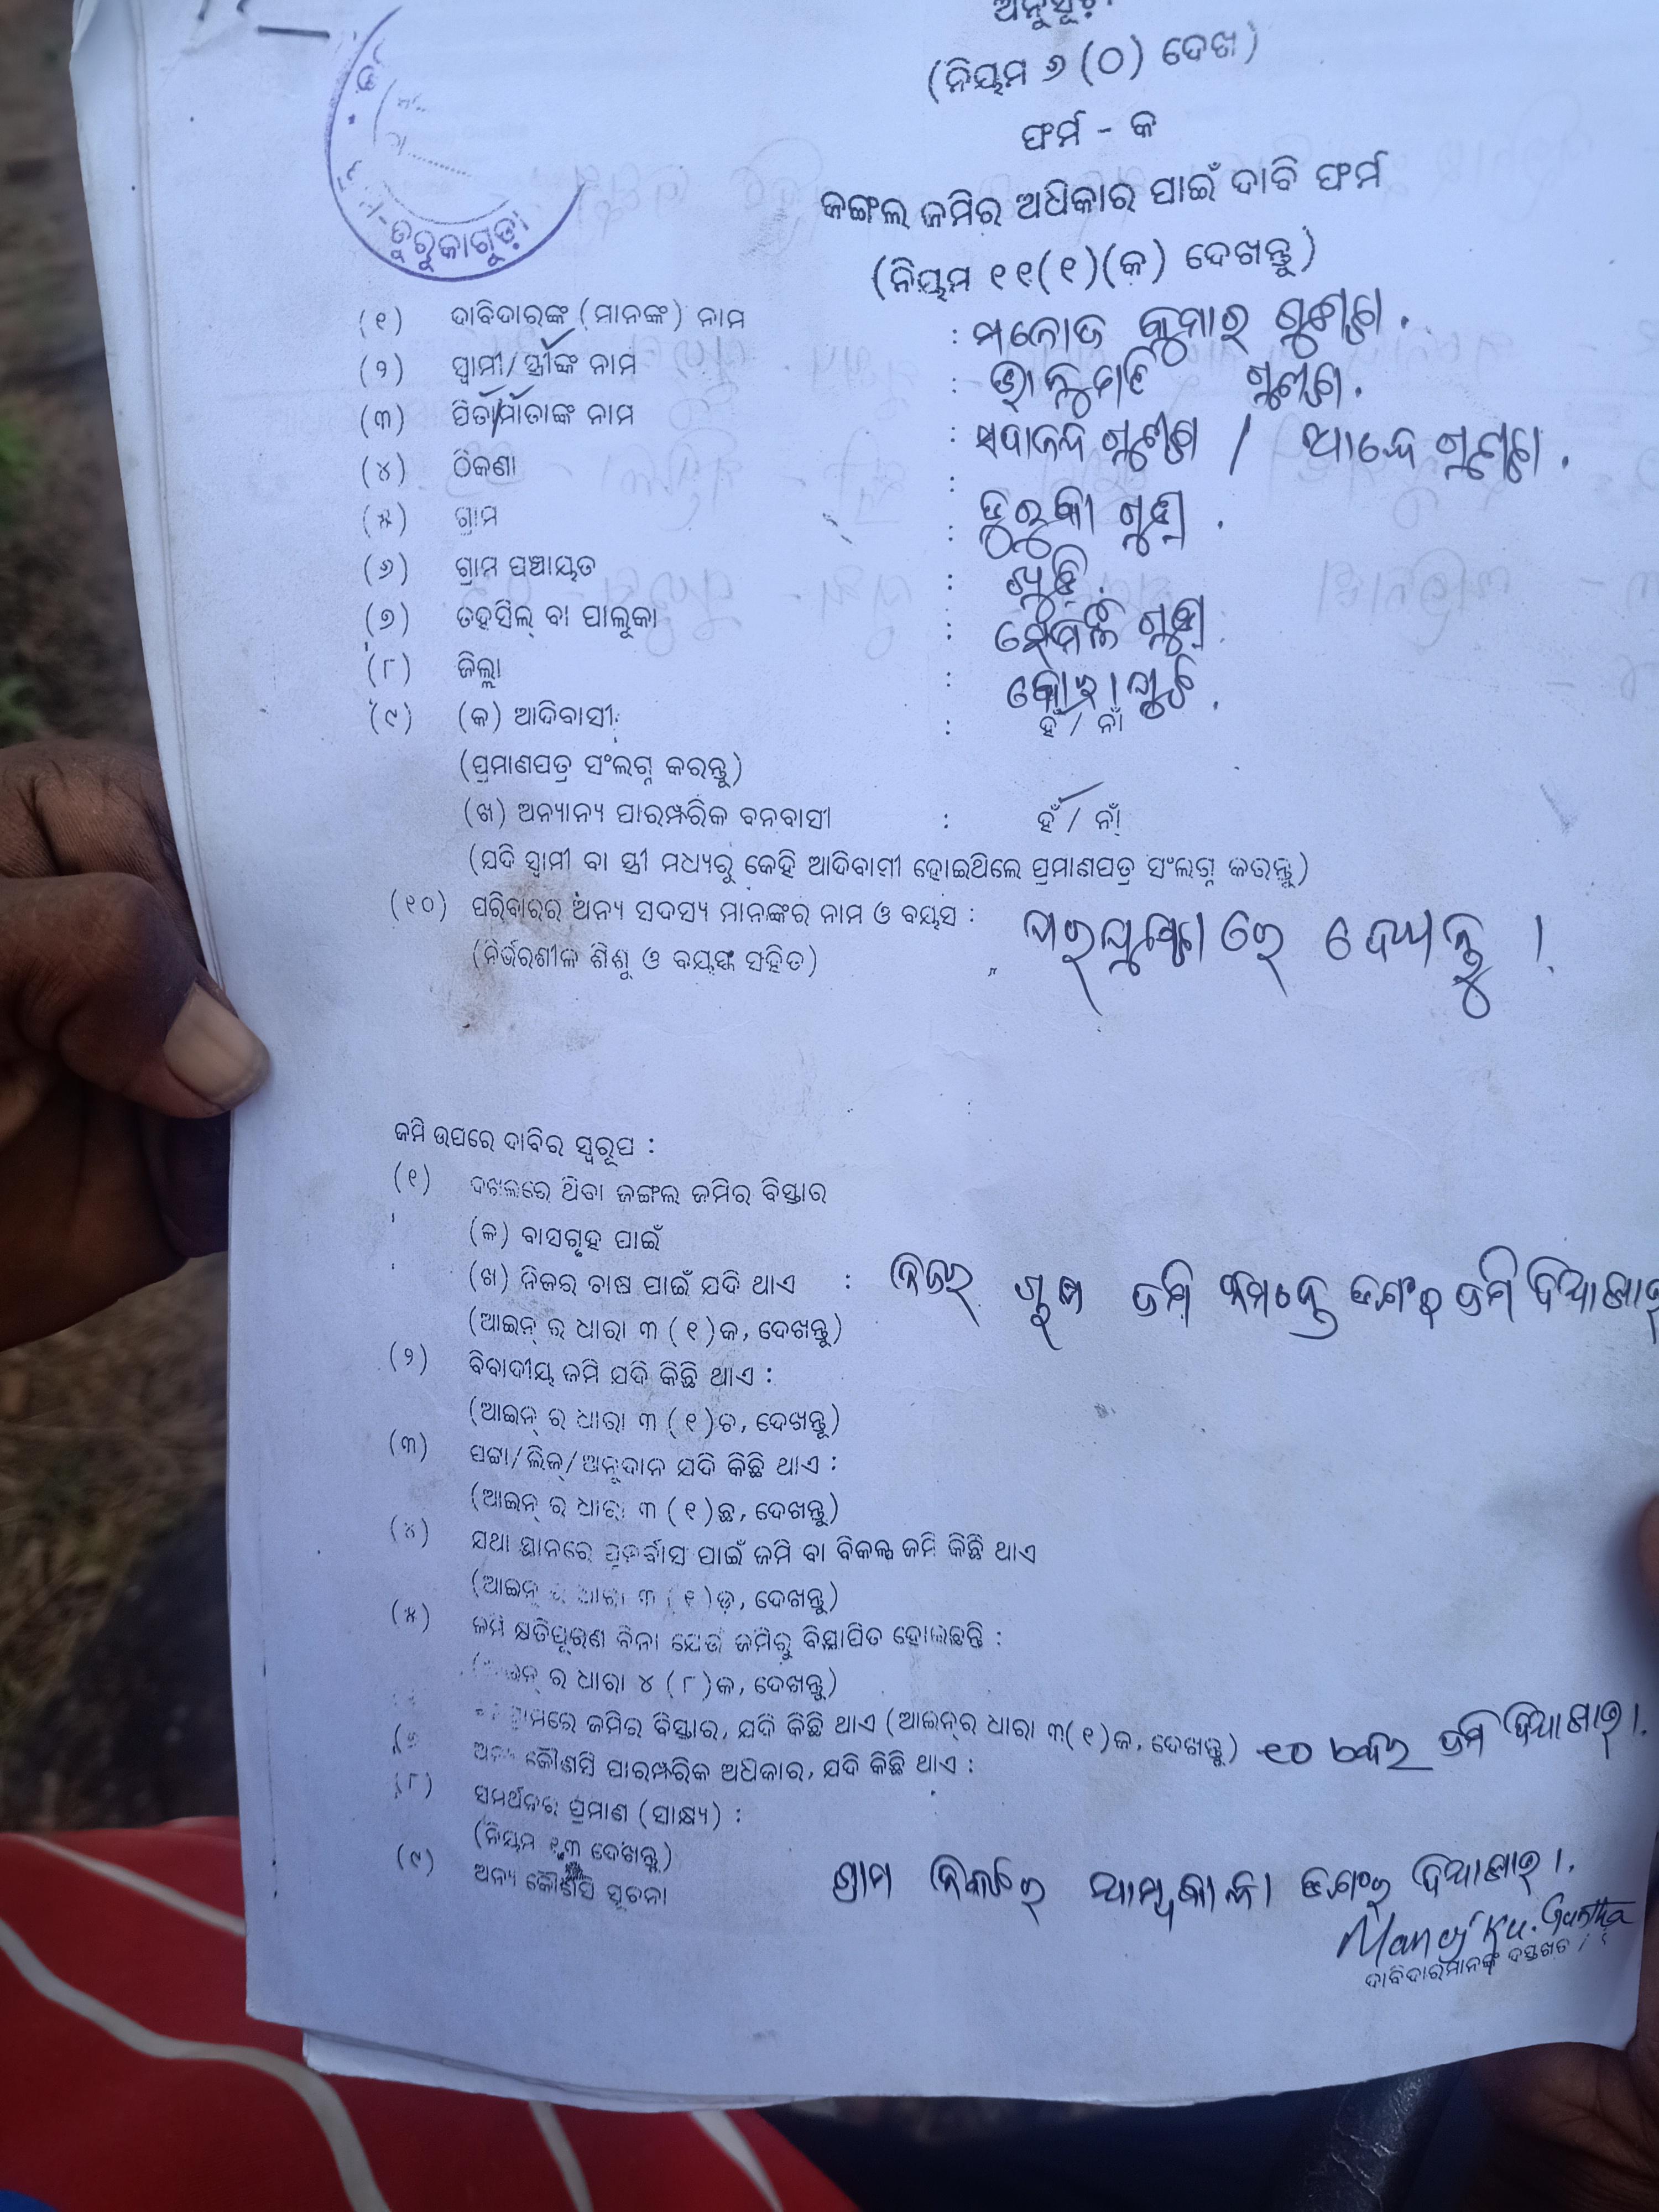 (ନିୟମ ୬ (୦) ଦେଖ)
ଫର୍ମ - କ
ଜଙ୍ଗଲ ଜମିର ଅଧିକାର ପାଇଁ ଦାବି ଫର୍ମ
(ନିୟମ ୧୧(୧)(କ) ଦେଖନ୍ତୁ)
ତୁରୁକାଗୁଡ଼ା
(୧) ଦାବିଦାରଙ୍କ (ମାନଙ୍କ) ନାମ : ମନୋଜ କୁମାର ଗୁଣ୍ଠା .
(୨) ସ୍ୱାମୀ/ସ୍ତ୍ରୀଙ୍କ ନାମ : ଭାନୁମତି ଗୁଣ୍ଠା .
(୩) ପିତା/ମାତାଙ୍କ ନାମ : ସଦାନନ୍ଦ ଗୁଣ୍ଠା / ଆନ୍ଦେ ଗୁଣ୍ଠା .
(୪) ଠିକଣା :
(୫) ଗ୍ରାମ : ତୁରୁକାଗୁଡ଼ା .
(୬) ଗ୍ରାମ ପଞ୍ଚାୟତ :
(୭) ତହସିଲ୍ ବା ପାଲୁକା : ସେମିଳିଗୁଡ଼ା
(୮) ଜିଲ୍ଲା : କୋରାପୁଟ .
(୯) (କ) ଆଦିବାସୀ : ହଁ / ନାଁ
(ପ୍ରମାଣପତ୍ର ସଂଲଗ୍ନ କରନ୍ତୁ)
(ଖ) ଅନ୍ୟାନ୍ୟ ପାରମ୍ପରିକ ବନବାସୀ : ହଁ / ନାଁ
(ଯଦି ସ୍ୱାମୀ ବା ସ୍ତ୍ରୀ ମଧ୍ୟରୁ କେହି ଆଦିବାସୀ ହୋଇଥିଲେ ପ୍ରମାଣପତ୍ର ସଂଲଗ୍ନ କରନ୍ତୁ)
(୧୦) ପରିବାରର ଅନ୍ୟ ସଦସ୍ୟ ମାନଙ୍କର ନାମ ଓ ବୟସ : ପରପୃଷ୍ଠାରେ ଦେଖନ୍ତୁ ।
(ନିର୍ଭରଶୀଳ ଶିଶୁ ଓ ବୟସ୍କ ସହିତ)
ଜମି ଉପରେ ଦାବିର ସ୍ୱରୂପ :
(୧) ଦଖଲରେ ଥିବା ଜଙ୍ଗଲ ଜମିର ବିସ୍ତାର
(କ) ବାସଗୃହ ପାଇଁ
(ଖ) ନିଜର ଚାଷ ପାଇଁ ଯଦି ଥାଏ : ନିଜର ଜମି ନିମନ୍ତେ ଜମି ଦିଆଯାଉ
(ଆଇନ୍ ର ଧାରା ୩ (୧)କ, ଦେଖନ୍ତୁ)
(୨) ବିବାଦୀୟ ଜମି ଯଦି କିଛି ଥାଏ :
(ଆଇନ୍ ର ଧାରା ୩ (୧)ଚ, ଦେଖନ୍ତୁ)
(୩) ପଟ୍ଟା/ଲିଜ୍/ଅନୁଦାନ ଯଦି କିଛି ଥାଏ :
(ଆଇନ୍ ର ଧାରା ୩ (୧)ଛ, ଦେଖନ୍ତୁ)
(୪) ଯଥା ସ୍ଥାନରେ ପାଇଁ ଜମି ବା ବିକଳ୍ପ ଜମି କିଛି ଥାଏ
(ଆଇନ୍ ର ଧାରା ୩ (୧)ଡ଼, ଦେଖନ୍ତୁ)
(୫) ଜମି କ୍ଷତିପୂରଣ ବିନା ଯେଉଁ ଜମିରୁ ବିସ୍ଥାପିତ ହୋଇଛନ୍ତି :
(ଆଇନ୍ ର ଧାରା ୪ (୮)କ, ଦେଖନ୍ତୁ)
ଜମିର ବିସ୍ତାର, ଯଦି କିଛି ଥାଏ (ଆଇନ୍‌ର ଧାରା ୩(୧)ଜ, ଦେଖନ୍ତୁ) ୧୦ ଜମି ଦିଆଯାଉ ।.
(୭) ଅନ୍ୟ କୌଣସି ପାରମ୍ପରିକ ଅଧିକାର, ଯଦି କିଛି ଥାଏ :
(୮) ସମର୍ଥନର ପ୍ରମାଣ (ସାକ୍ଷ୍ୟ) :
(ନିୟମ ୧୩ ଦେଖନ୍ତୁ)
(୯) ଅନ୍ୟ କୌଣସି ସୂଚନା ଗ୍ରାମ ଦିଆଯାଉ ।.
Manoj Ku. Guntha
ଦାବିଦାରମାନଙ୍କ ଦସ୍ତଖତ /